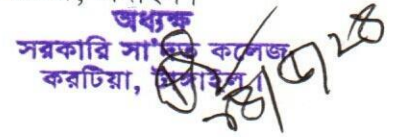 অধ্যক্ষ
সরকারি সা'দত কলেজ
করটিয়া, টাঙ্গাইল।